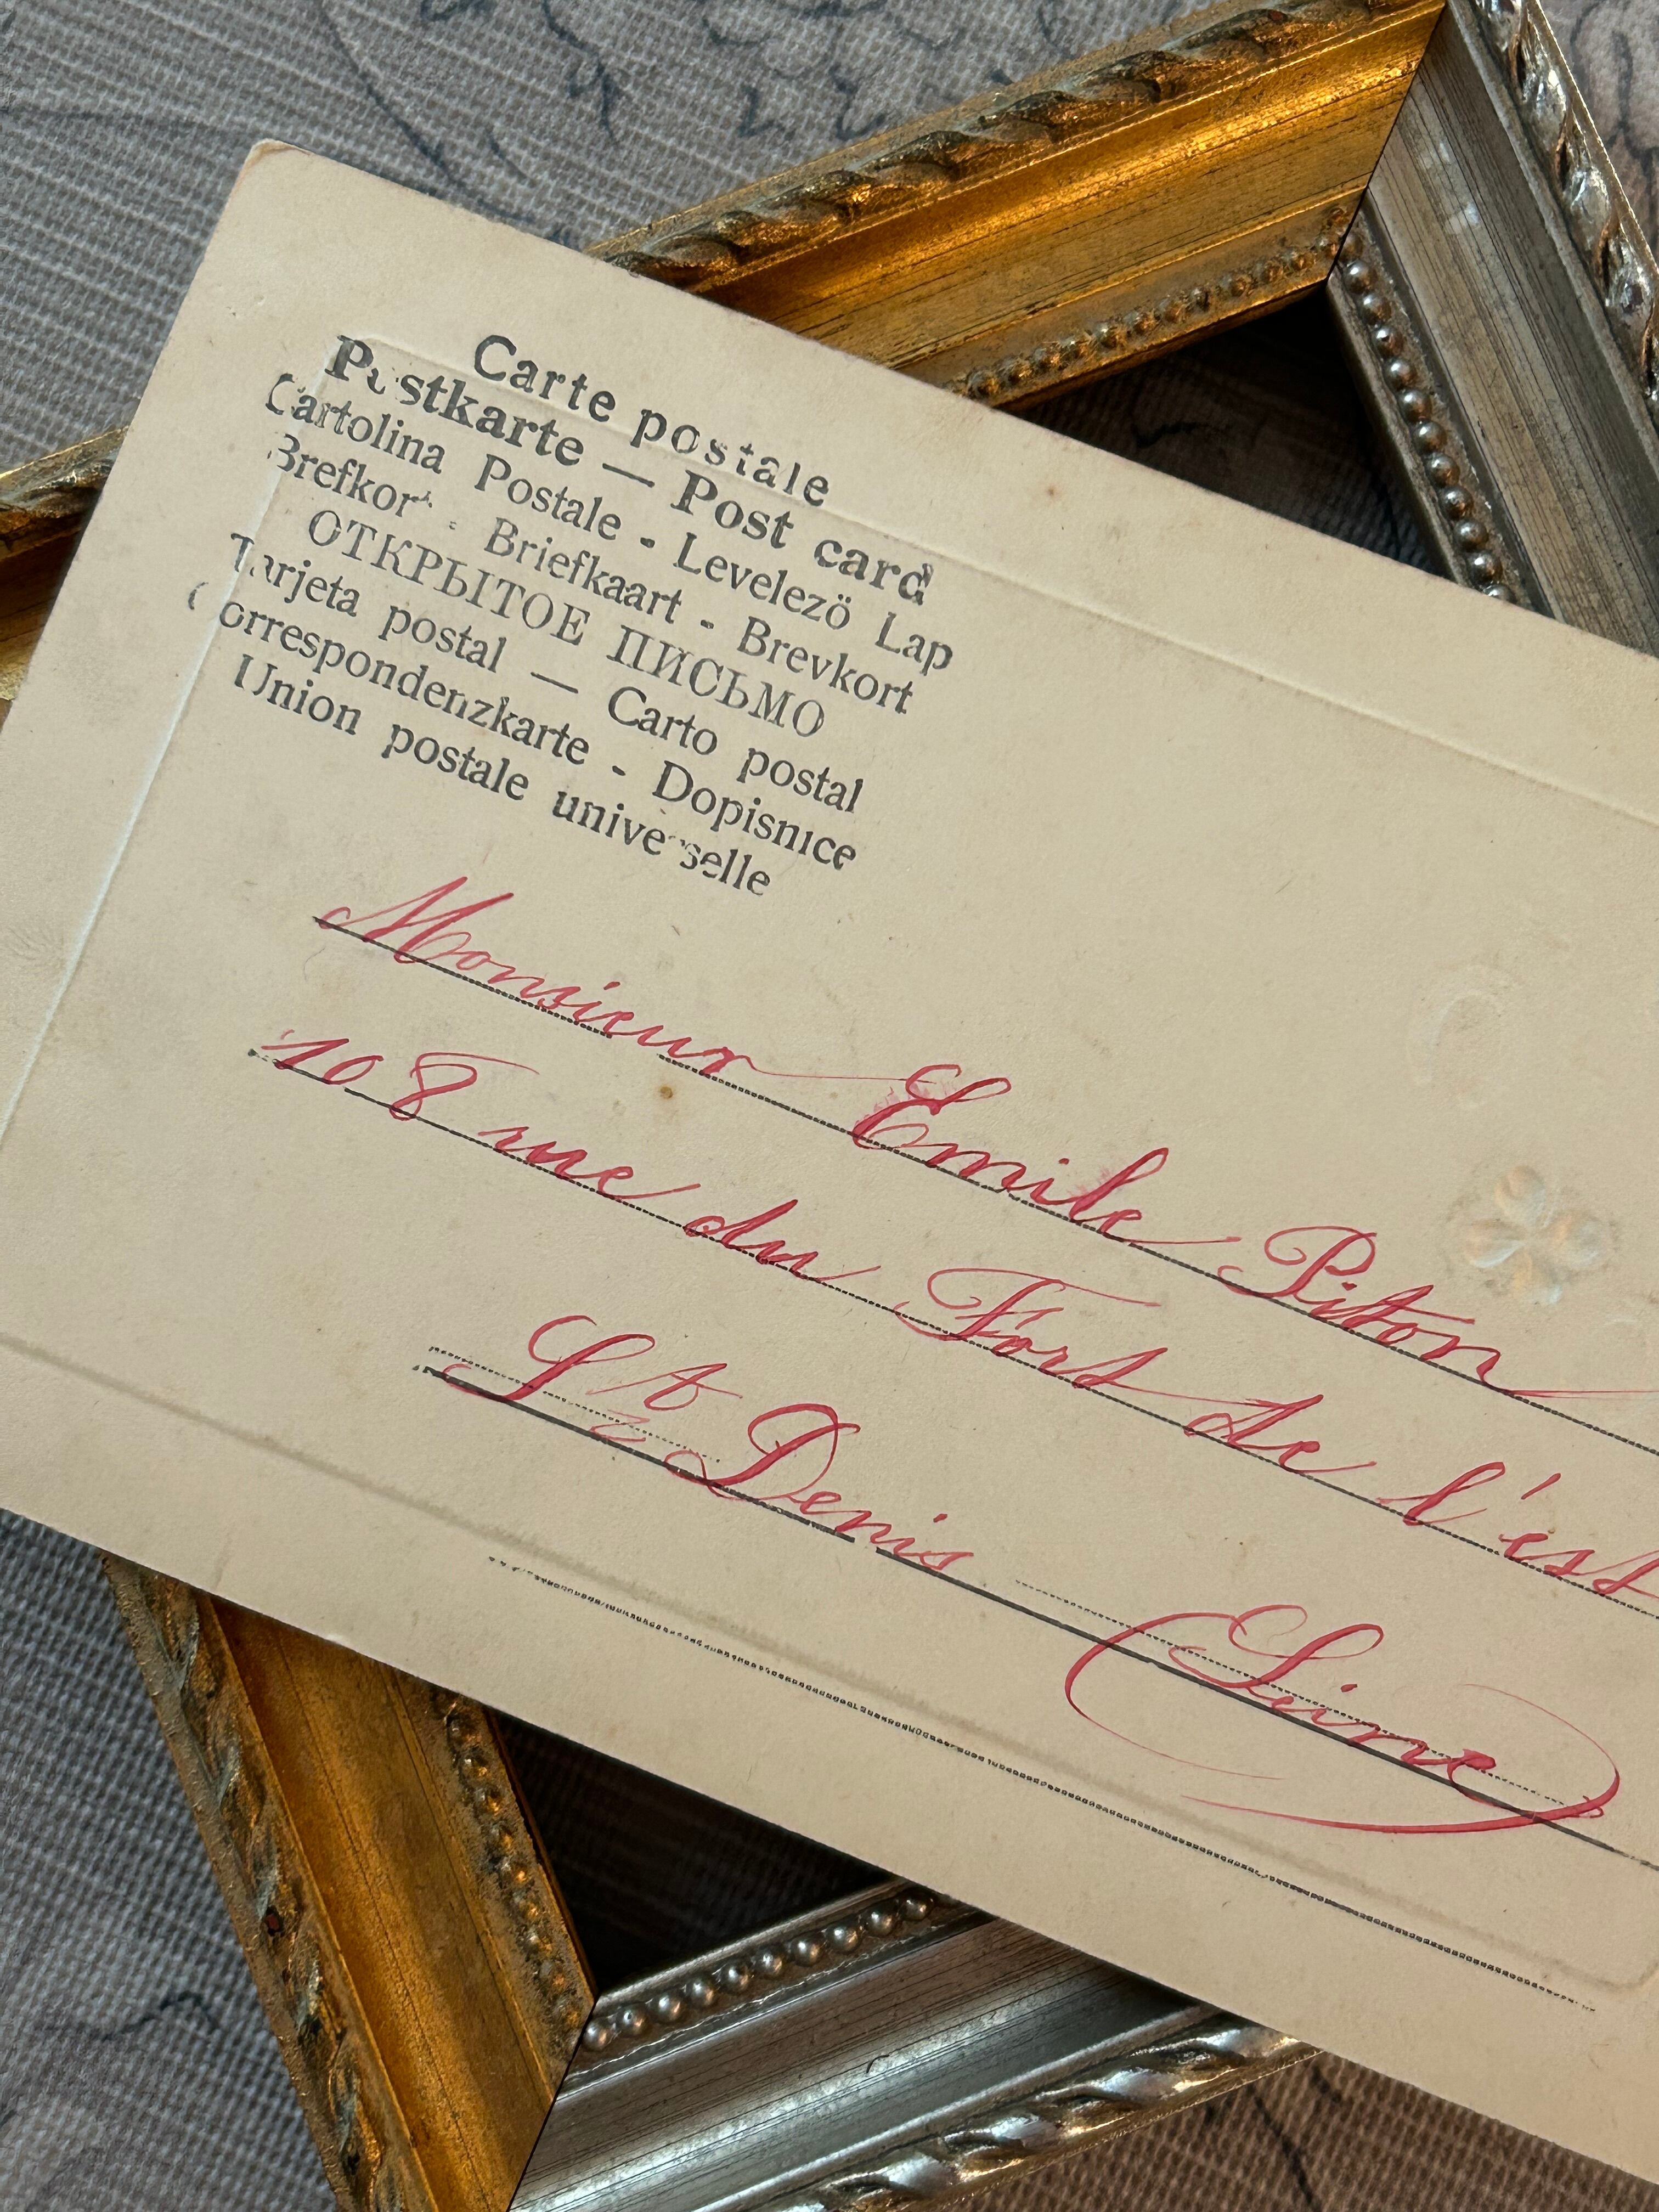 Carte postale
Postkarte — Post card
Cartolina Postale - Levelezö Lap
Brefkort - Briefkaart - Brevkort
ОТКРЫТОЕ ПИСЬМО
Tarjeta postal — Carto postal
Correspondenzkarte - Dopisnice
Union postale universelle
Monsieur Emile Piton
108 rue du Fort de l'est
St Denis
(Seine)